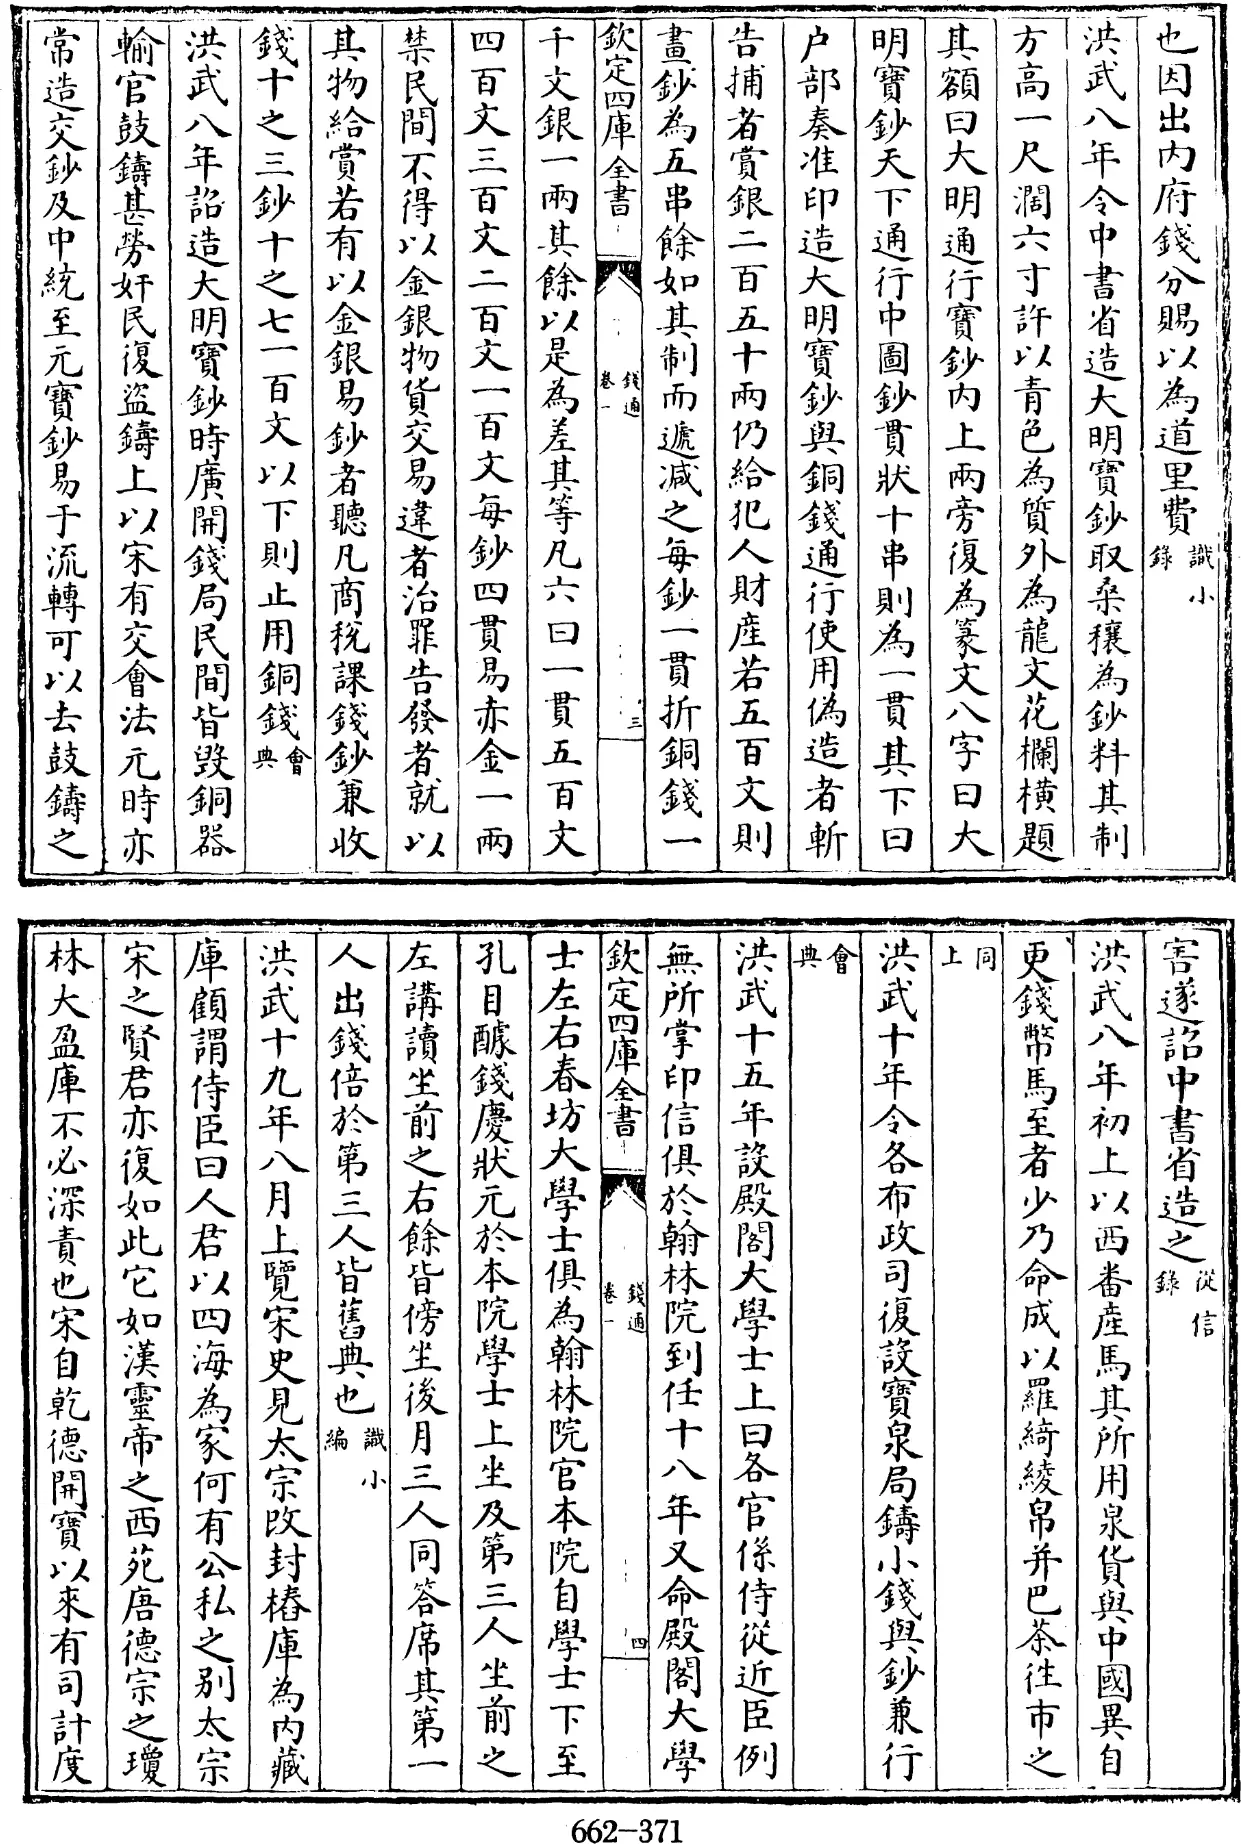 也因出内府錢分賜以為道里費識小錄
洪武八年令中書省造大明寶鈔取桑穰為鈔料其制
方高一尺濶六寸許以青色為質外為龍文花欄橫題
其額曰大明通行寶鈔内上兩旁復為篆文八字曰大
明寶鈔天下通行中圖鈔貫狀十串則為一貫其下曰
户部奏准印造大明寶鈔與銅錢通行使用偽造者斬
告捕者賞銀二百五十兩仍給犯人財産若五百文則
畫鈔為五串餘如其制而遞減之每鈔一貫折銅錢一
欽定四庫全書
錢通
卷一
三
千文銀一兩其餘以是為差其等凡六曰一貫五百文
四百文三百文二百文一百文每鈔四貫易赤金一兩
禁民間不得以金銀物貨交易違者治罪告發者就以
其物給賞若有以金銀易鈔者聽凡商稅課錢鈔兼收
錢十之三鈔十之七一百文以下則止用銅錢會典
洪武八年詔造大明寶鈔時廣開錢局民間皆毀銅器
輸官鼓鑄甚勞奸民復盜鑄上以宋有交會法元時亦
常造交鈔及中統至元寶鈔易于流轉可以去鼓鑄之
害遂詔中書省造之從信錄
洪武八年初上以西番産馬其所用泉貨與中國異自
更錢幣馬至者少乃命成以羅綺綾帛并巴茶徃市之
同上
洪武十年令各布政司復設寶泉局鑄小錢與鈔兼行
會典
洪武十五年設殿閣大學士上曰各官係侍從近臣例
無所掌印信俱於翰林院到任十八年又命殿閣大學
欽定四庫全書
錢通
卷一
四
士左右春坊大學士俱為翰林院官本院自學士下至
孔目醵錢慶狀元於本院學士上坐及第三人坐前之
左講讀坐前之右餘皆傍坐後月三人同答席其第一
人出錢倍於第三人皆舊典也識小編
洪武十九年八月上覽宋史見太宗改封樁庫為内藏
庫顧謂侍臣曰人君以四海為家何有公私之别太宗
宋之賢君亦復如此它如漢靈帝之西苑唐德宗之瓊
林大盈庫不必深責也宋自乾德開寶以來有司計度
662-371